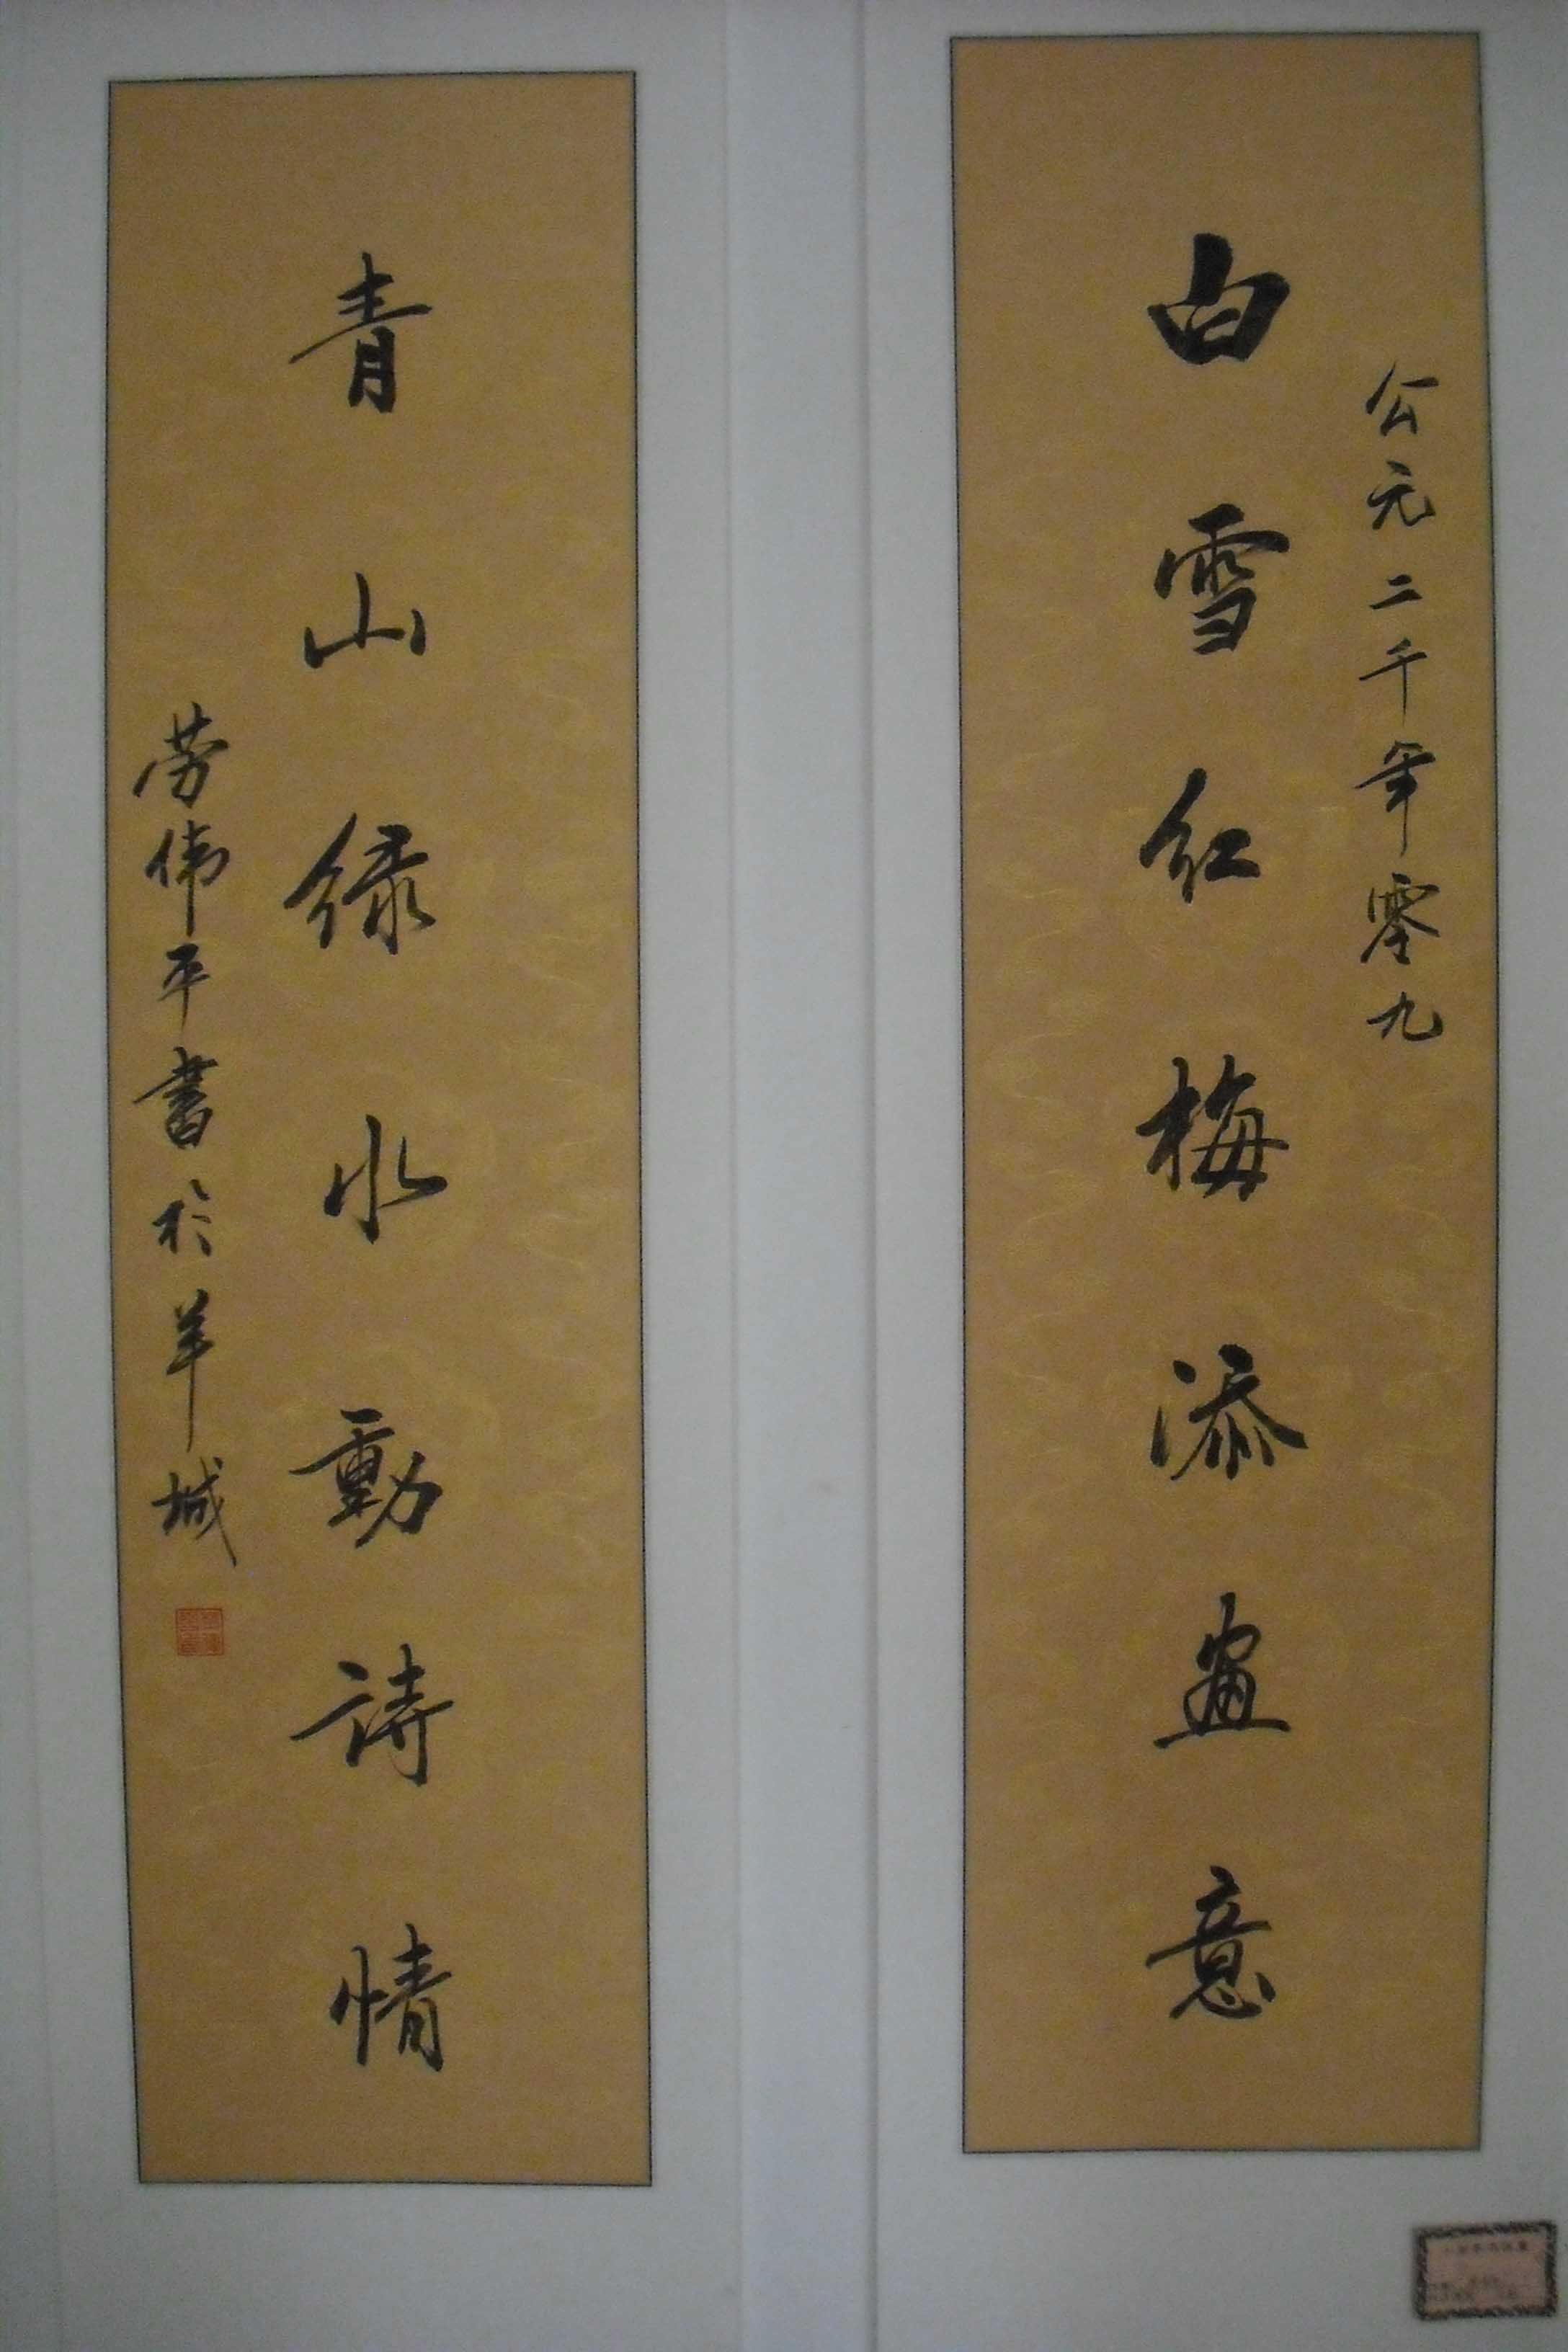 公元二千年零九
白雪红梅添畫意
青山绿水動詩情
劳伟平書於羊城